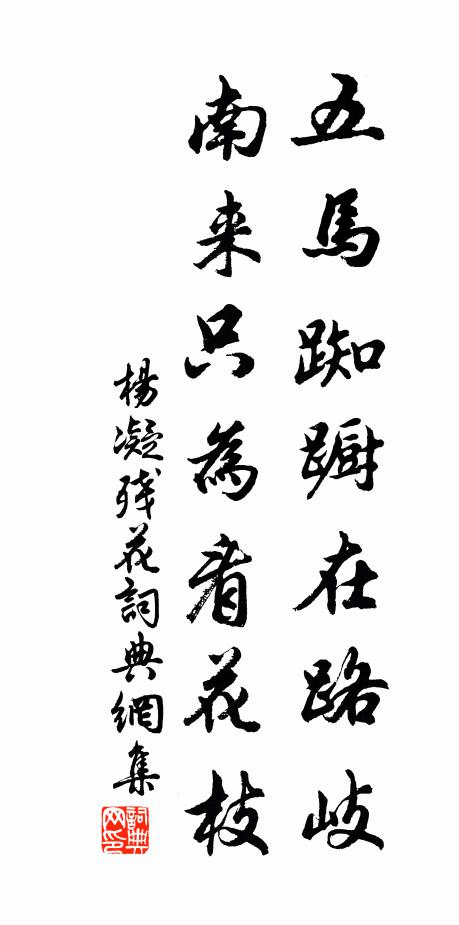 五馬踟蹰在路岐
南来只為看花枝
楊凝殘花詞典網集
詞典
网印